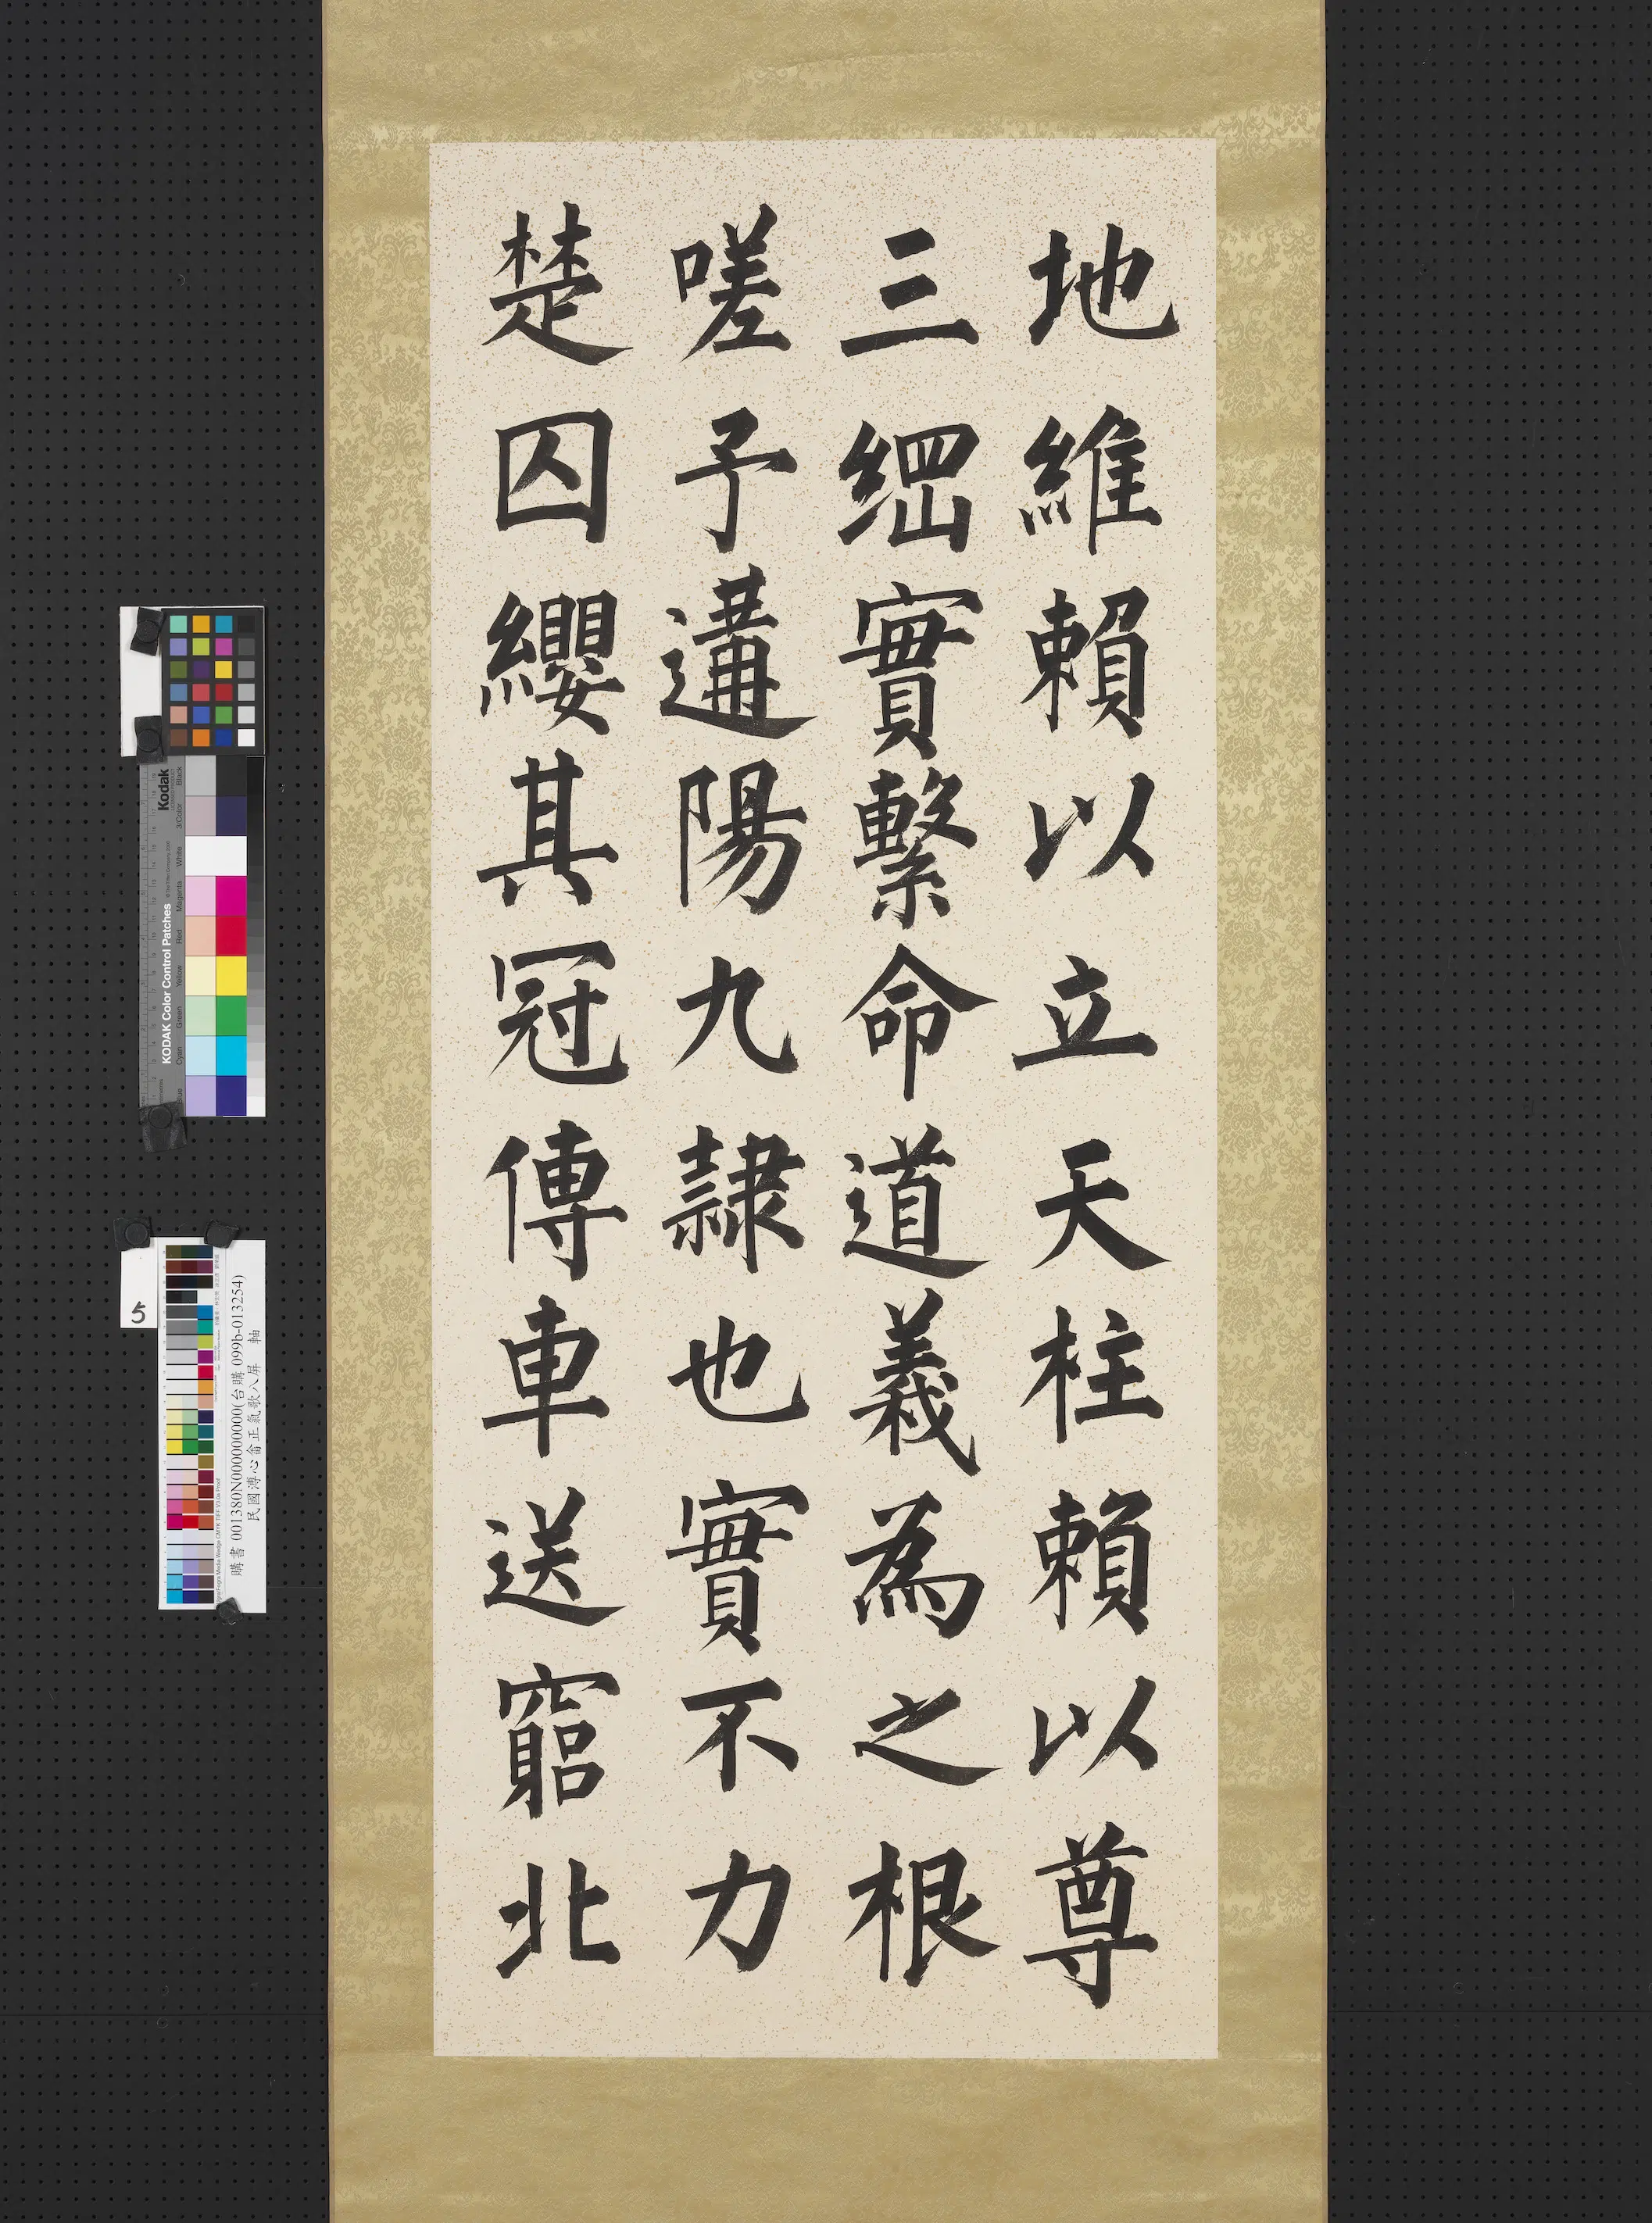 地維賴以立天柱賴以尊
三綱實繫命道義為之根
嗟予遘陽九隸也實不力
楚囚纓其冠傳車送窮北
Kodak
KODAK Color Control Patches
Blue Cyan Green Yellow Red Magenta White 3/Color Black
5
購書 001380N000000000(台購 099b-013254)
民國溥心畬正氣歌八屏 軸